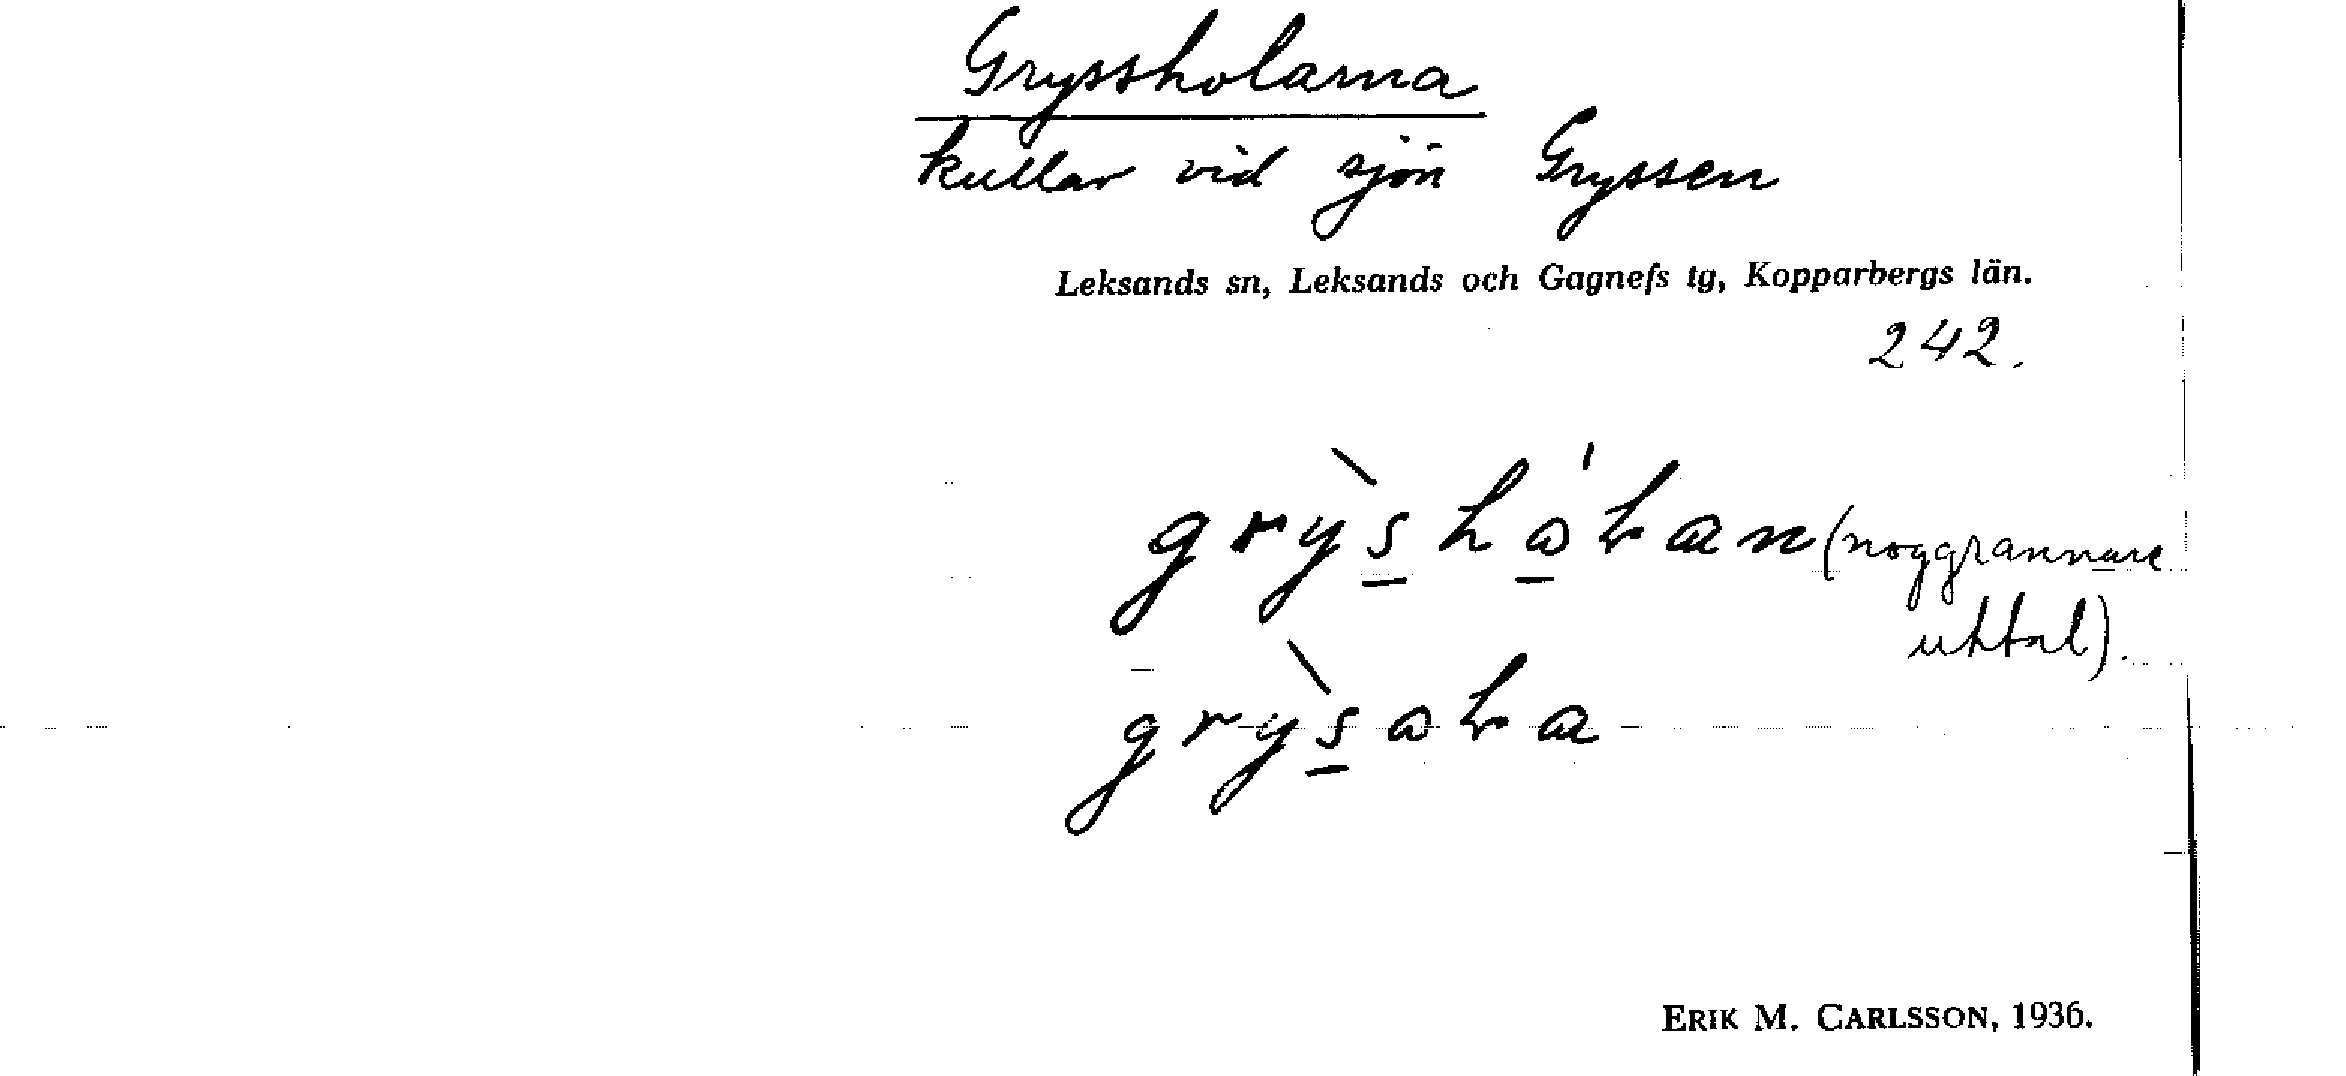 Gryssholarna
kullar vid sjön Gryssen
Leksands sn, Leksands och Gagnefs tg, Kopparbergs län.
242.
(noggrannare
uttal).
ERIK M. CARLSSON, 1936.